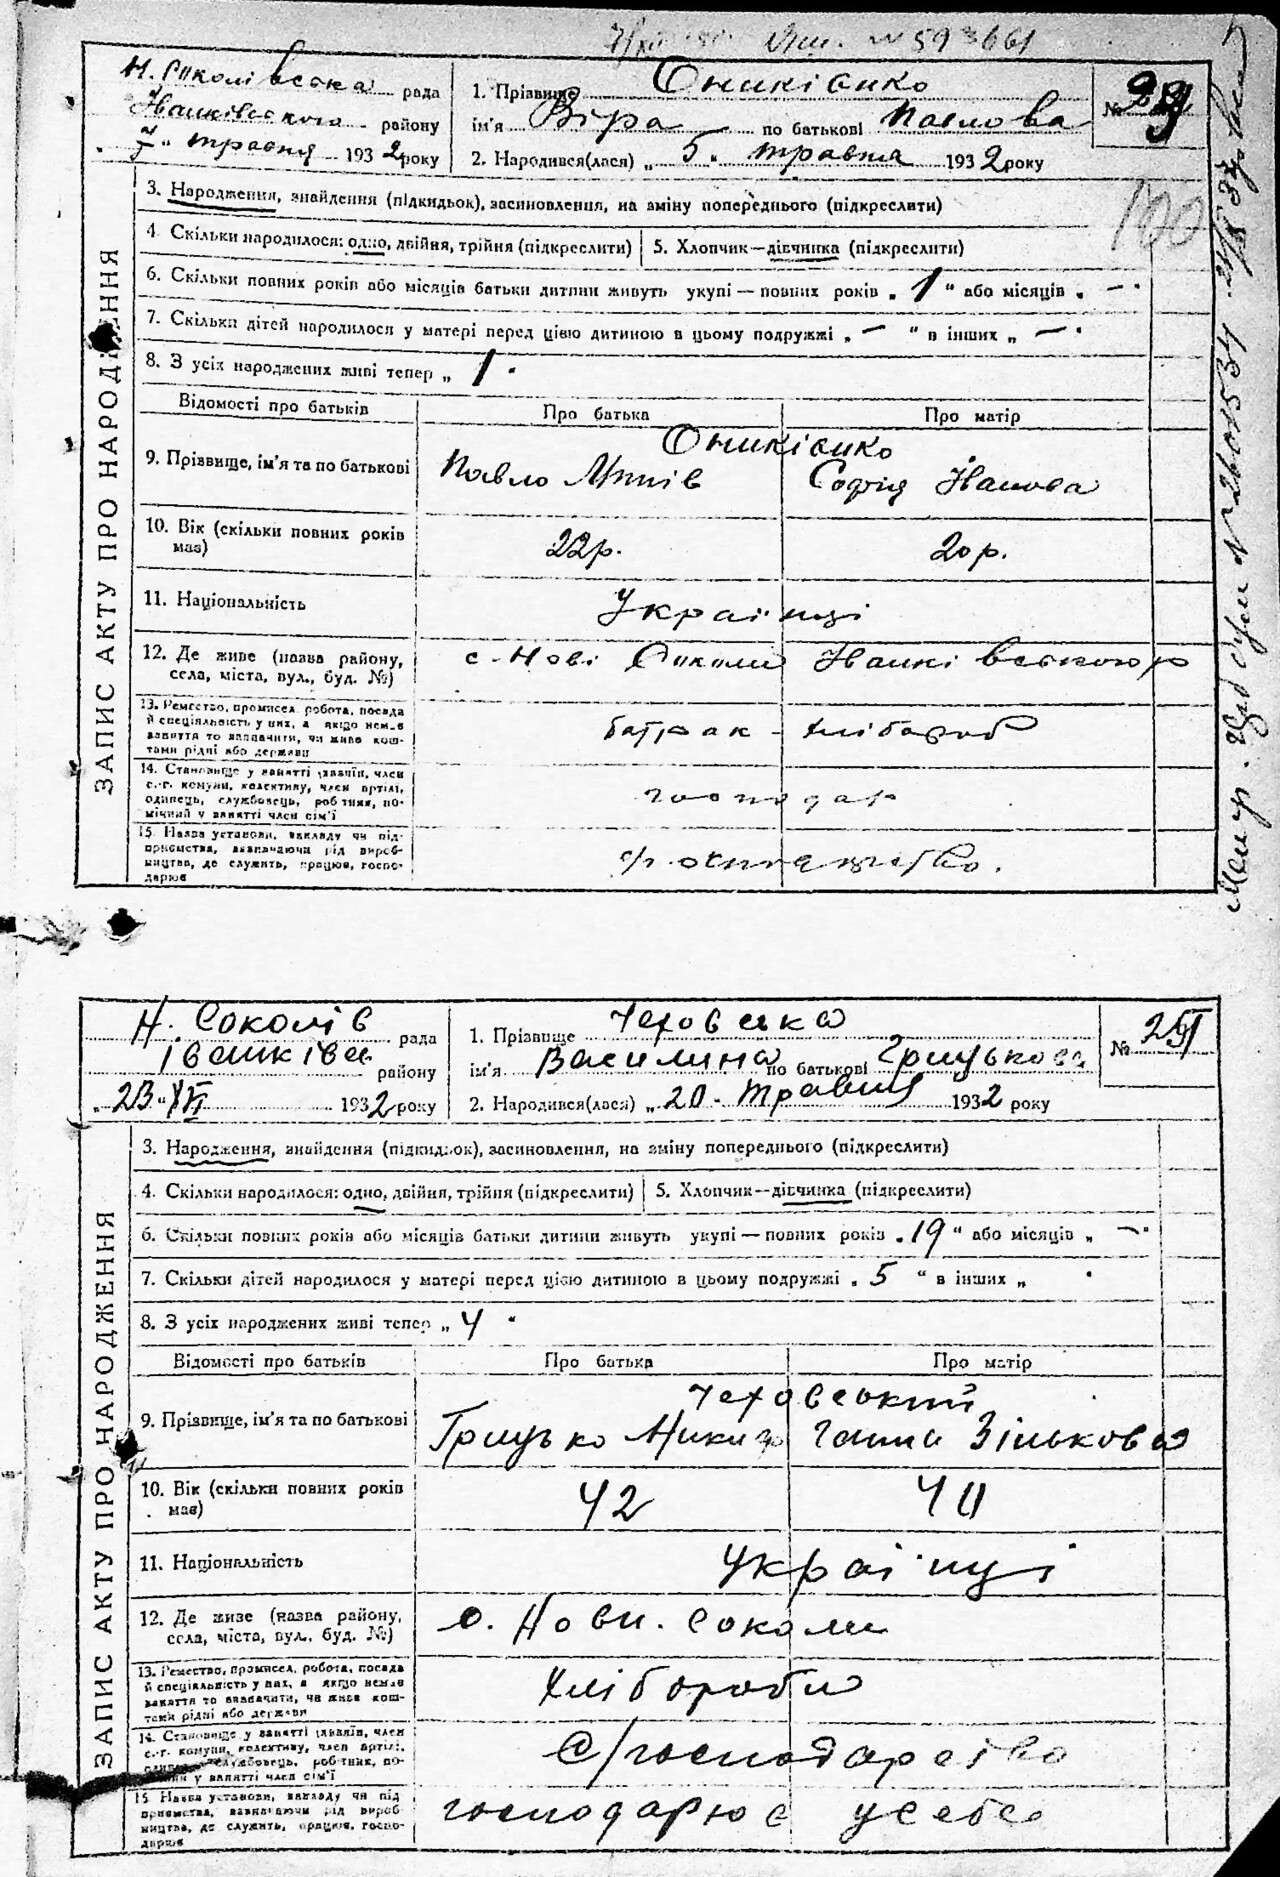 593661
Н. Соколівська рада
Іванківського району
„ 7 " травня 1932 року
1. Прізвище Оникієнко
ім'я Віра по батькові Павлова
2. Народився(лася) „ 5 „ травня 1932 року
№
100
3. Народження, знайдення (підкидьок), засиновлення, на зміну попереднього (підкреслити)
4. Скільки народилося: одно, двійня, трійня (підкреслити) 5. Хлопчик—дівчинка (підкреслити)
6. Скільки повних років або місяців батьки дитини живуть укупі — повних років „ 1 " або місяців „ — "
7. Скільки дітей народилося у матері перед цією дитиною в цьому подружжі „ — " в інших „ — "
8. З усіх народжених живі тепер „ 1 "
ЗАПИС АКТУ ПРО НАРОДЖЕННЯ
Відомості про батьків Про батька Про матір
Оникієнко
9. Прізвище, ім'я та по батькові Павло Софія Іванова
10. Вік (скільки повних років має) 22р. 20р.
11. Національність Українці
12. Де живе (назва району, села, міста, вул., буд. №) с. Нові Соколи Іванківського р
13. Ремество, промисел, робота, посада
й спеціяльність у них, а якщо немає
заняття то зазначити, чи живе кош-
тами рідні або держави
батрак - хлібороб
14. Становище у занятті хазяїн, член
с.-г. комуни, колективу, член артілі,
одинець, службовець, робітник, по-
мічний у занятті член сім'ї
господар
15. Назва установи, закладу чи під-
приємства, зазначаючи рід вироб-
ництва, де служить, працює, госпо-
дарює
Н. Соколів рада
Іванків району
„ 23 " XII 1932 року
1. Прізвище Чеховська
ім'я Василина по батькові Грицькова
2. Народився(лася) „ 20 „ травня 1932 року
№
3. Народження, знайдення (підкидьок), засиновлення, на зміну попереднього (підкреслити)
4. Скільки народилося: одно, двійня, трійня (підкреслити) 5. Хлопчик—дівчинка (підкреслити)
6. Скільки повних років або місяців батьки дитини живуть укупі — повних років „ 19 " або місяців „ — "
7. Скільки дітей народилося у матері перед цією дитиною в цьому подружжі „ 5 " в інших „ "
8. З усіх народжених живі тепер „ 4 "
ЗАПИС АКТУ ПРО НАРОДЖЕННЯ
Відомості про батьків Про батька Про матір
Чеховський
9. Прізвище, ім'я та по батькові Грицько Ганна Зінькова
10. Вік (скільки повних років має) 42 40
11. Національність Українці
12. Де живе (назва району, села, міста, вул., буд. №) с. Нови. Соколи
13. Ремество, промисел, робота, посада
й спеціяльність у них, а якщо немає
заняття то зазначити, чи живе кош-
тами рідні або держави
Хлібороби
14. Становище у занятті хазяїн, член
с.-г. комуни, колективу, член артілі,
одинець, службовець, робітник, по-
мічний у занятті член сім'ї
с/господарство
15. Назва установи, закладу чи під-
приємства, зазначаючи рід вироб-
ництва, де служить, працює, госпо-
дарює
господарює у себе